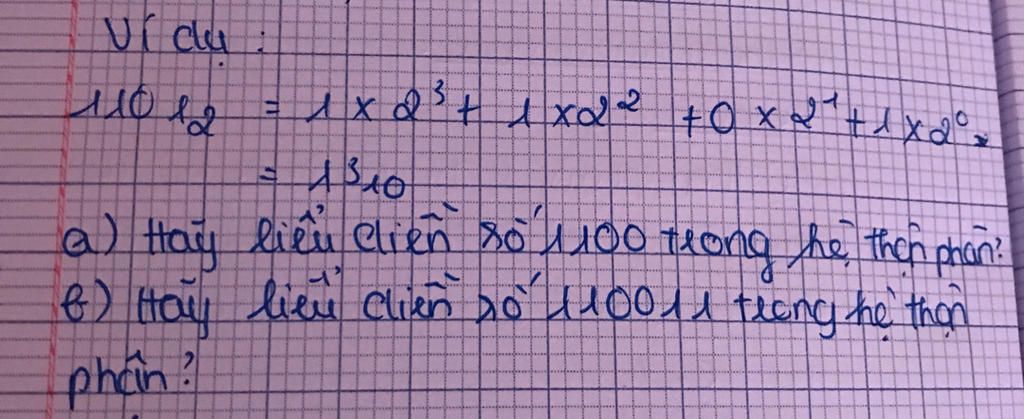 Ví dụ :
1101₂ = 1 x 2³ + 1 x 2² + 0 x 2¹ + 1 x 2⁰
= 13₁₀
a) Hãy biểu diễn số 1100 trong hệ thập phân?
b) Hãy biểu diễn số 110011 trong hệ thập
phân?